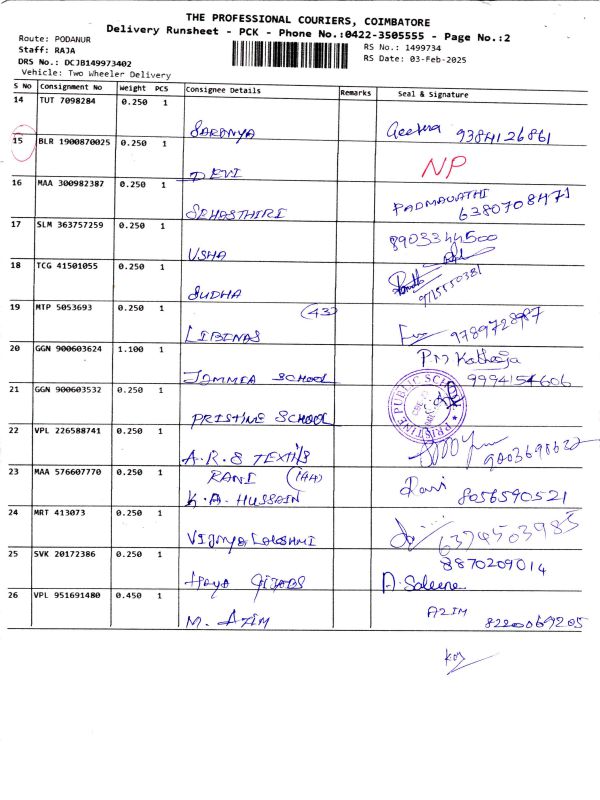 THE PROFESSIONAL COURIERS, COIMBATORE
Delivery Runsheet - PCK - Phone No.:0422-3505555 - Page No.:2
Route: PODANUR
Staff: RAJA
DRS No.: DCJB149973402
Vehicle: Two Wheeler Delivery
RS No.: 1499734
RS Date: 03-Feb-2025
S No Consignment No Weight PCS Consignee Details Remarks Seal & Signature
14 TUT 7098284 0.250 1
SARANYA Geetha 9384126861
15 BLR 1900870025 0.250 1
DEVI NP
16 MAA 300982387 0.250 1
SEHASTHIRI PADMAVATHI 6380708471
17 SLM 363757259 0.250 1
USHA 8903344500
18 TCG 41501055 0.250 1
SUDHA
19 MTP 5053693 0.250 1 (43)
LIBINAS 9789728987
20 GGN 900603624 1.100 1
SCHOOL 9994154606
21 GGN 900603532 0.250 1
PRISTINE SCHOOL
PRISTINE PUBLIC SCHOOL
22 VPL 226588741 0.250 1
A.R.S TEXTILS 9003698622
23 MAA 576607770 0.250 1
RANI (144)
K.A. HUSSAIN Rani 8056590521
24 MRT 413073 0.250 1
VIJAYA LAKSHMI 6374503985
25 SVK 20172386 0.250 1 8870209014
HIJABS A. Saleena
26 VPL 951691480 0.450 1
M. AZIM AZIM 8220069205